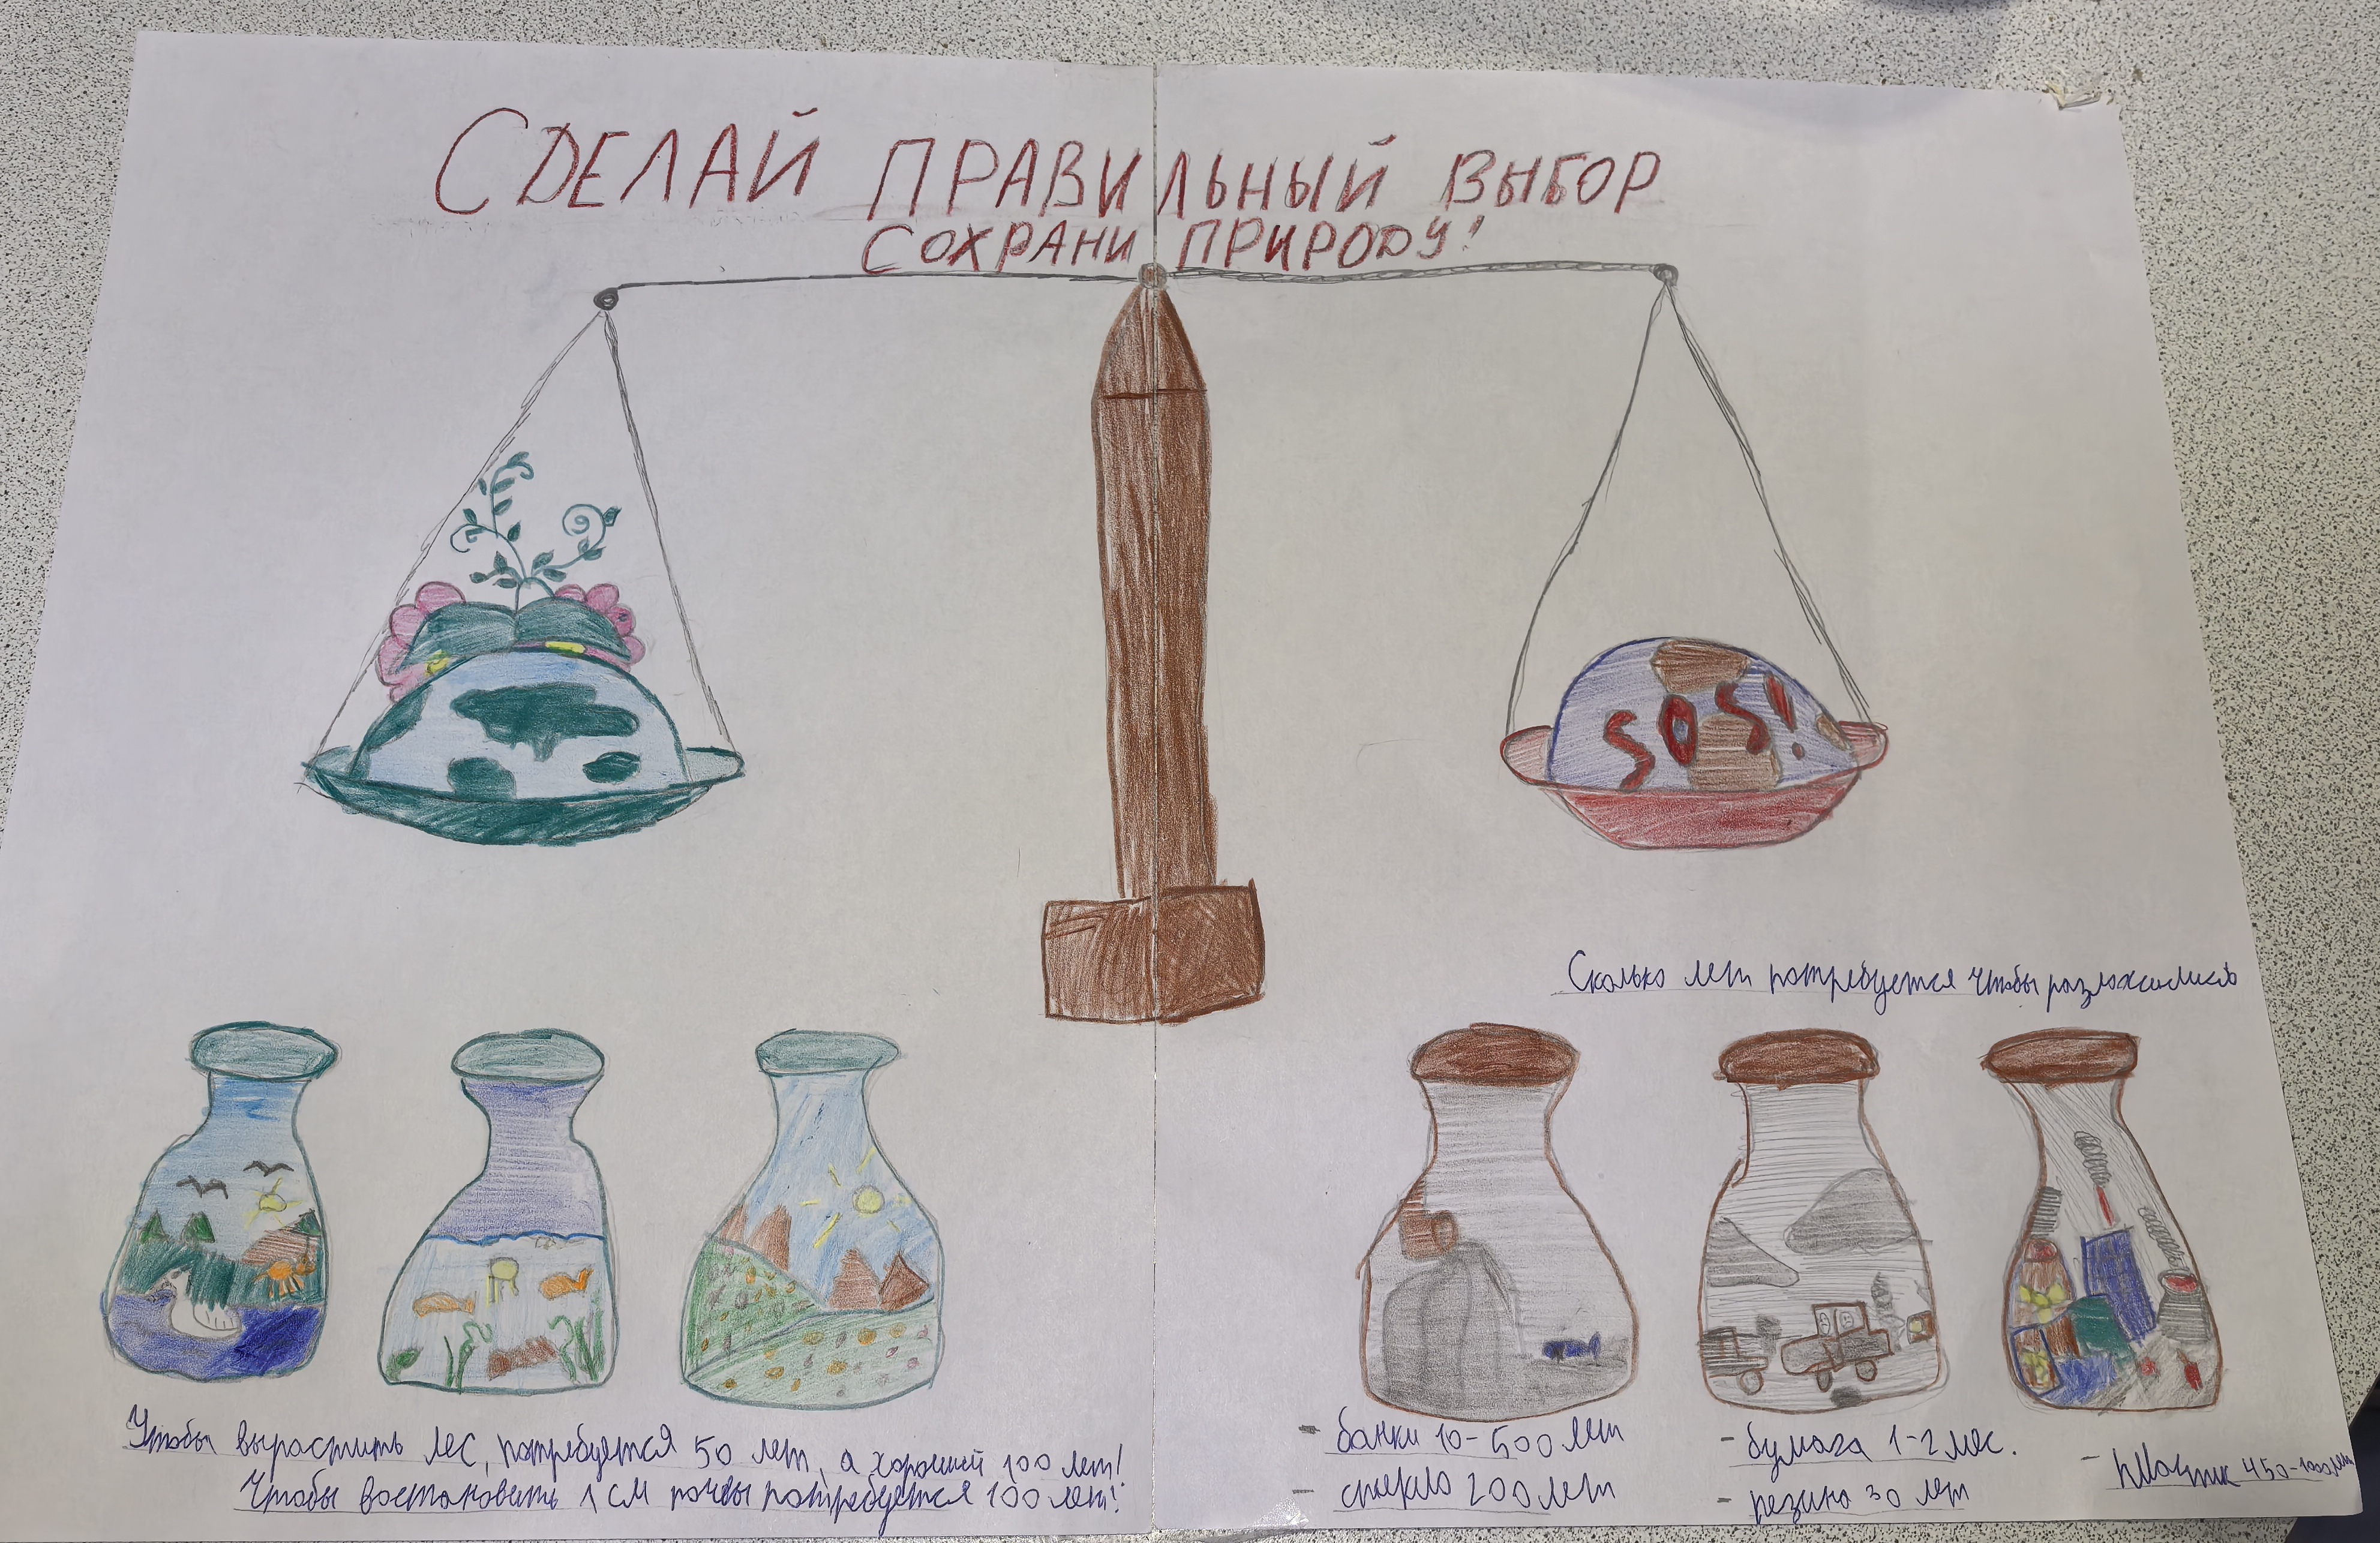 СДЕЛАЙ ПРАВИЛЬНЫЙ ВЫБОР
СОХРАНИ ПРИРОДУ!
SOS!
Сколько лет потребуется чтобы разложились
Чтобы вырастить лес, потребуется 50 лет, а хороший 100 лет!
Чтобы востоновить 1 см почвы потребуется 100 лет!
- банки 10-500 лет
- стекло 200 лет
- бумага 1-2 мес.
- резина 30 лет
- пластик 450-1000 лет